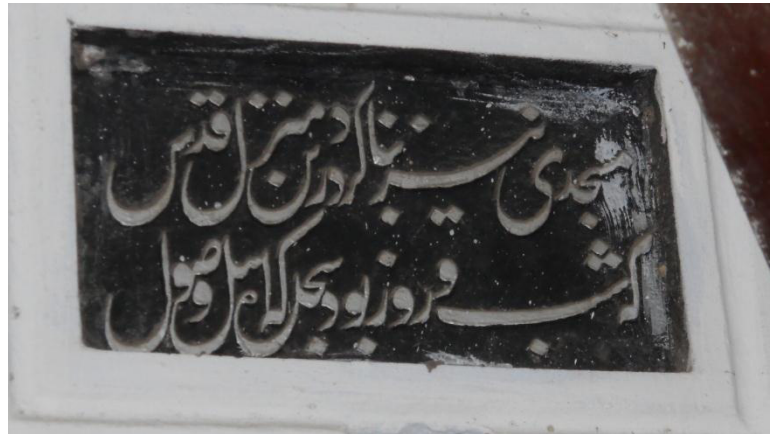 مسجدی نیز بنا کرد درین منزل قدس
که شب و روز بود سجدگه اهل وصول